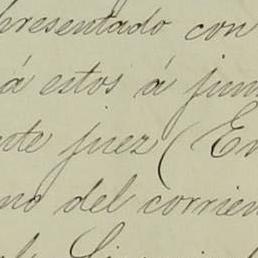 presentado con
á estos á jun
ste juez (En
no del corrien